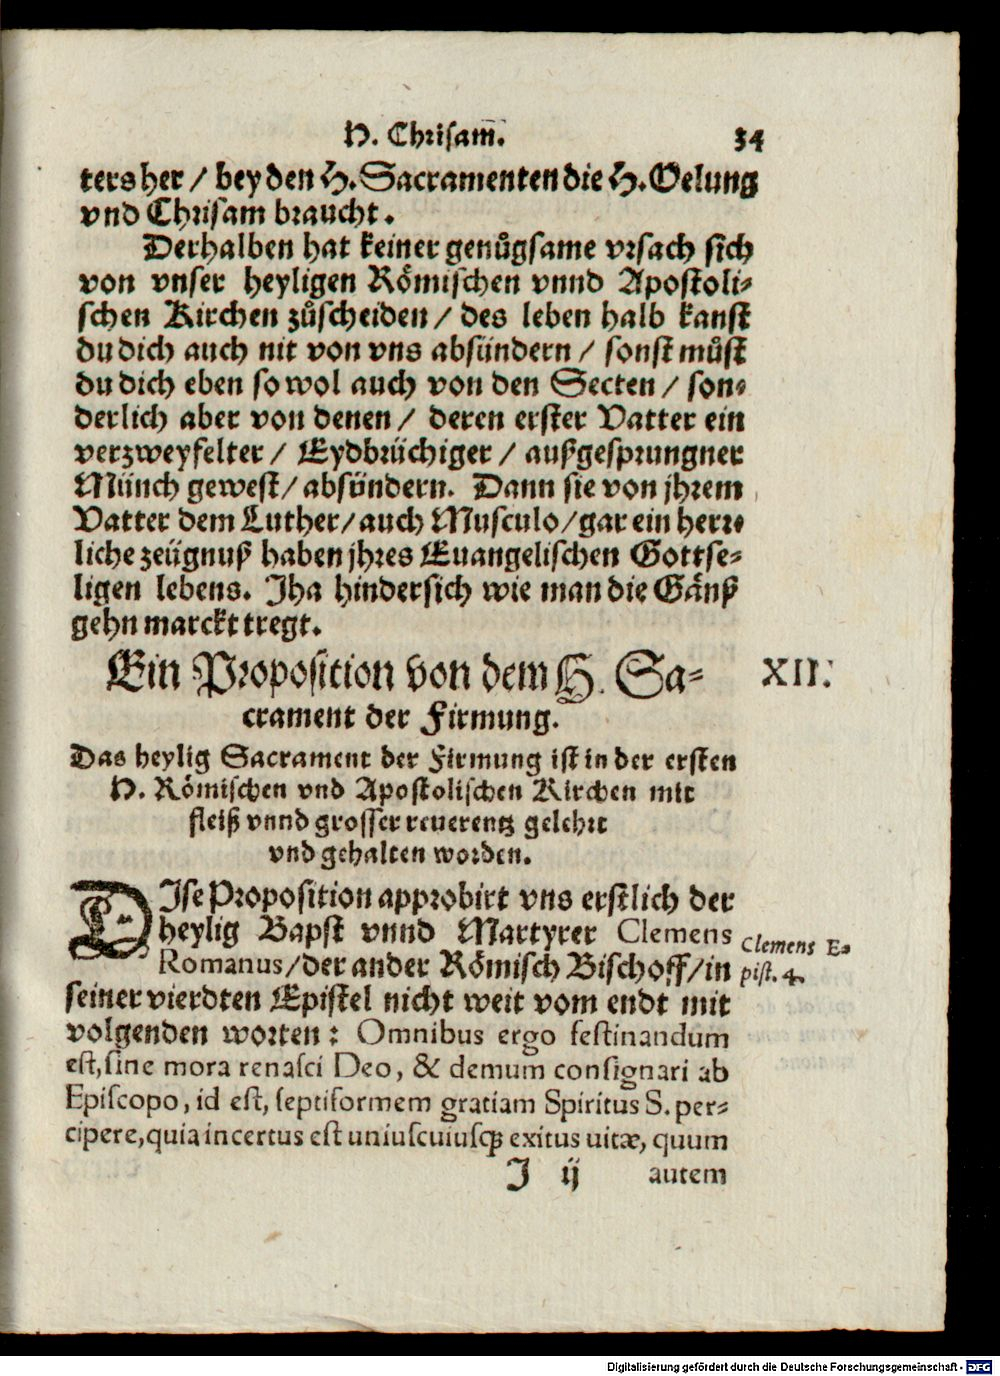 H. Chrisam̃. 34
ters her / bey den H. Sacramenten die H. Oelung
vnd Chrisam braucht.
Derhalben hat keiner genůgsame vrsach sich
von vnser heyligen Römischen vnnd Apostoli-
schen Kirchen zůscheiden / des leben halb kanst
du dich auch nit von vns absündern / sonst můst
du dich eben so wol auch von den Secten / son-
derlich aber von denen / deren erster Vatter ein
verzweyfelter / Eydbrüchiger / außgesprungner
Münch gewest / absündern. Dann sie von jhrem
Vatter dem Luther / auch Musculo / gar ein herr-
liche zeügnuß haben jhres Euangelischen Gottse-
ligen lebens. Jha hindersich wie man die Gänß
gehn marckt tregt.
Ein Proposition von dem H. Sa- XII.
crament der Firmung.
Das heylig Sacrament der Firmung ist in der ersten
H. Römischen vnd Apostolischen Kirchen mit
fleiß vnnd grosser reuerentz gelehrt
vnd gehalten worden.
DIse Proposition approbirt vns erstlich der
heylig Bapst vnnd Martyrer Clemens
Romanus / der ander Römisch Bischoff / in
Clemens E-
pist. 4.
seiner vierdten Epistel nicht weit vom endt mit
volgenden worten : Omnibus ergo festinandum
est, sine mora renasci Deo, & demum consignari ab
Episcopo, id est, septiformem gratiam Spiritus S. per-
cipere, quia incertus est uniuscuiusq́; exitus uitæ, quum
J ij autem
Digitalisierung gefördert durch die Deutsche Forschungsgemeinschaft - DFG